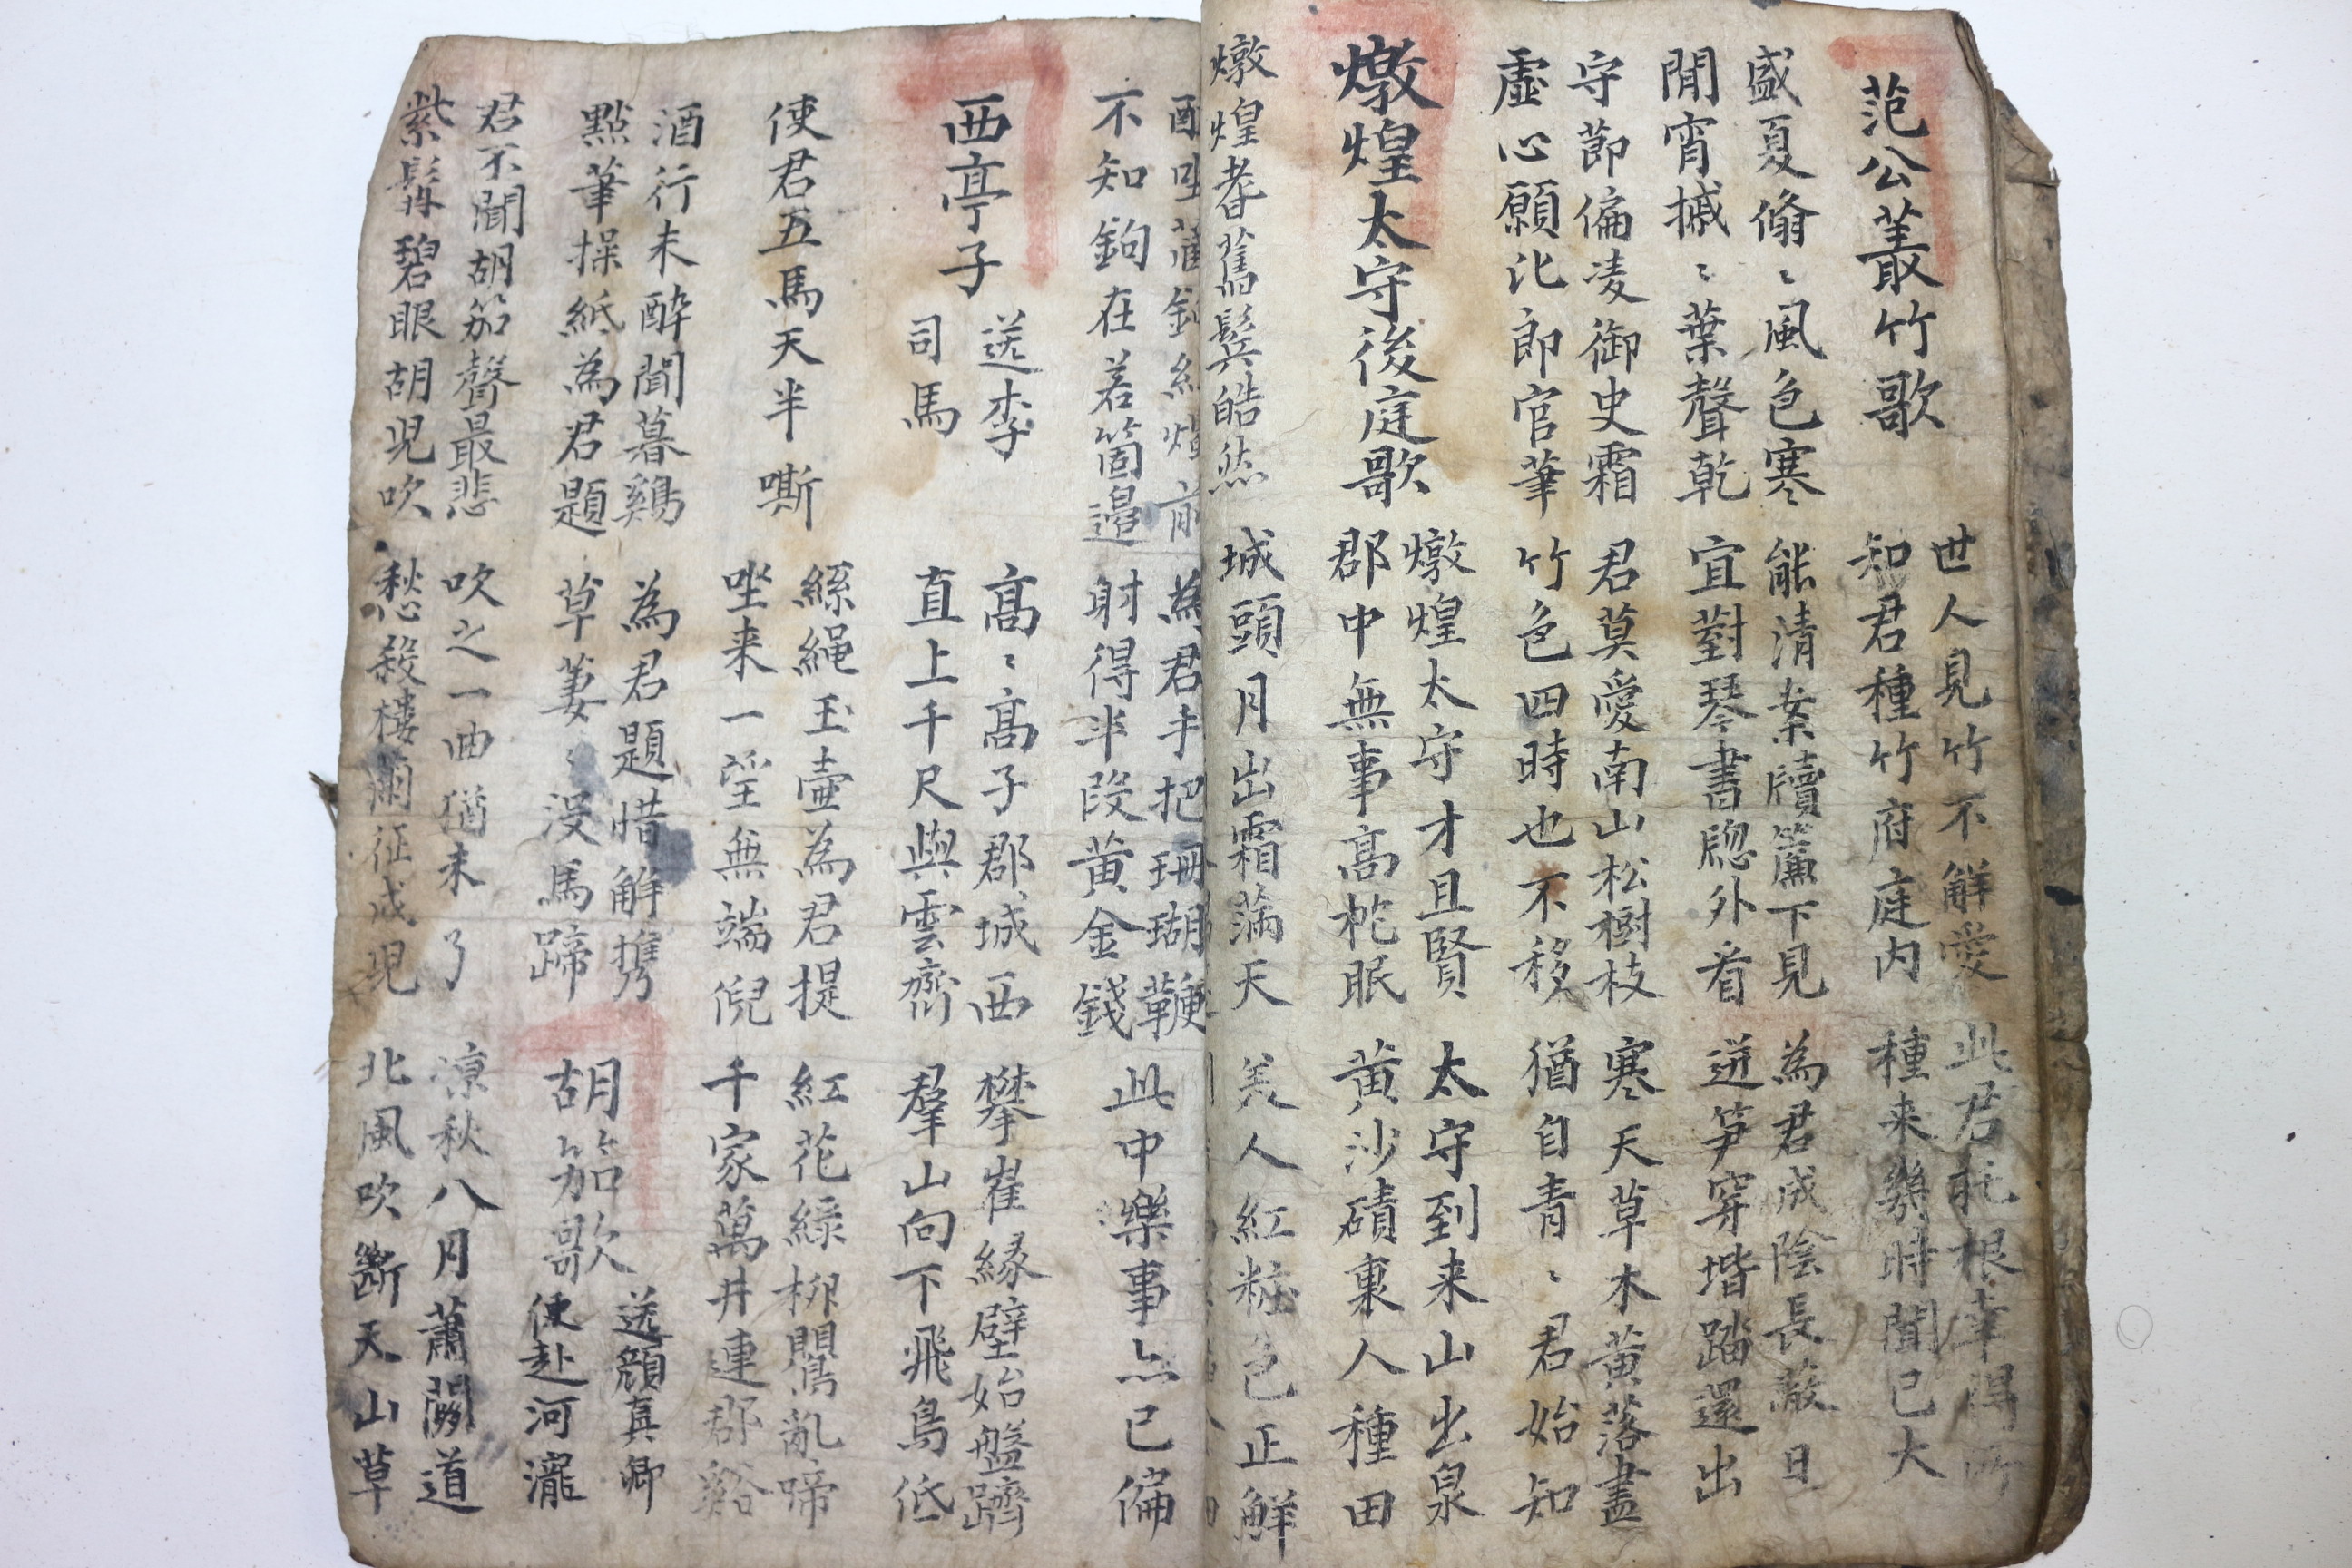 范公叢竹歌
世人見竹不解愛
知君種竹府庭内
此君託根幸得所
種来幾時聞已大
盛夏翛〻風色寒
閒宵摵〻葉聲乾
能清案牘簾下見
宜對琴書牕外看
為君成陰長蔽日
迸笋穿堦踏還出
守節偏凌御史霜
虛心願比郎官筆
君莫愛南山松樹枝
竹色四時也不移
寒天草木黄落盡
猶自青〻君始知
燉煌太守後庭歌
燉煌太守才且賢
郡中無事高枕眠
太守到来山出泉
黄沙磧裏人種田
燉煌耆舊鬓皓然
城頭月出霜滿天
美人紅粧色正鮮
不知鉤在若箇邉
為君手把珊瑚鞭
射得半段黄金錢
此中樂事亦已偏
西亭子
送李
司馬
高〻高子郡城西
直上千尺與雲齊
攀崔緣壁始盤躋
羣山向下飛鳥低
使君五馬天半嘶
絲繩玉壺為君提
坐来一望無端倪
紅花緑栁鸎亂啼
千家萬井連郡谿
酒行未醉聞暮鷄
點筆操紙為君題
為君題惜解攜
草萋〻没馬蹄
胡笳歌
送顔真卿
使赴河瀧
君不聞胡笳聲最悲
紫髯碧眼胡児吹
吹之一曲猶未了
愁殺樓蘭征戍児
凉秋八月蕭關道
北風吹斷天山草